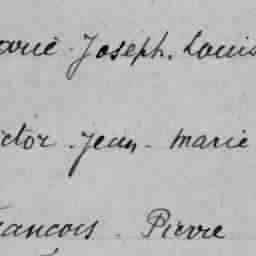 arie Joseph. Louis
ctor - Jean - Marie
rancois - Pierre